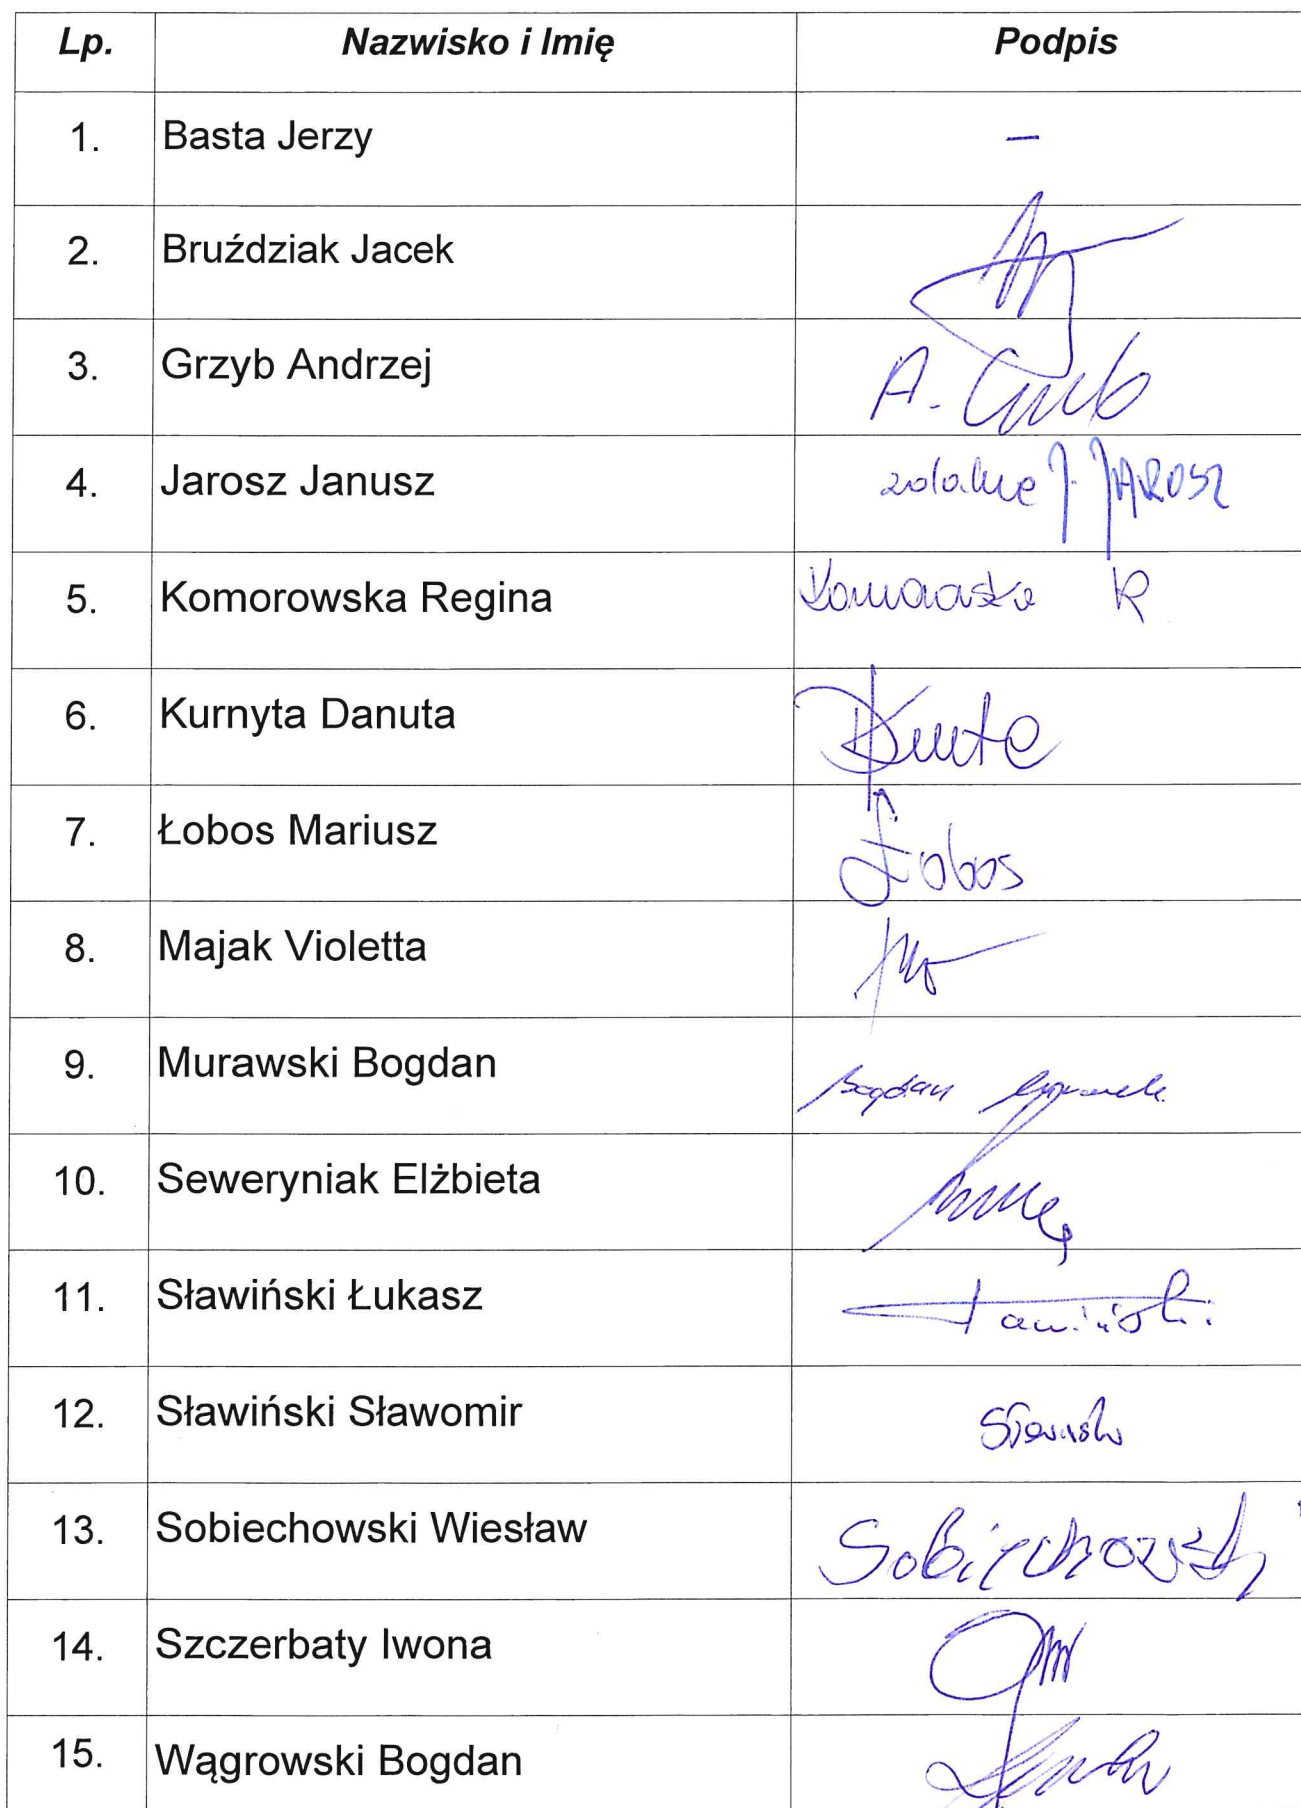 Lp. Nazwisko i Imię Podpis
1. Basta Jerzy –
2. Bruździak Jacek
3. Grzyb Andrzej A. Grzyb
4. Jarosz Janusz zdalnie J. JAROSZ
5. Komorowska Regina Komorowska R
6. Kurnyta Danuta
7. Łobos Mariusz Łobos
8. Majak Violetta
9. Murawski Bogdan Bogdan
10. Seweryniak Elżbieta
11. Sławiński Łukasz Sławiński
12. Sławiński Sławomir
13. Sobiechowski Wiesław Sobiechowski
14. Szczerbaty Iwona
15. Wągrowski Bogdan